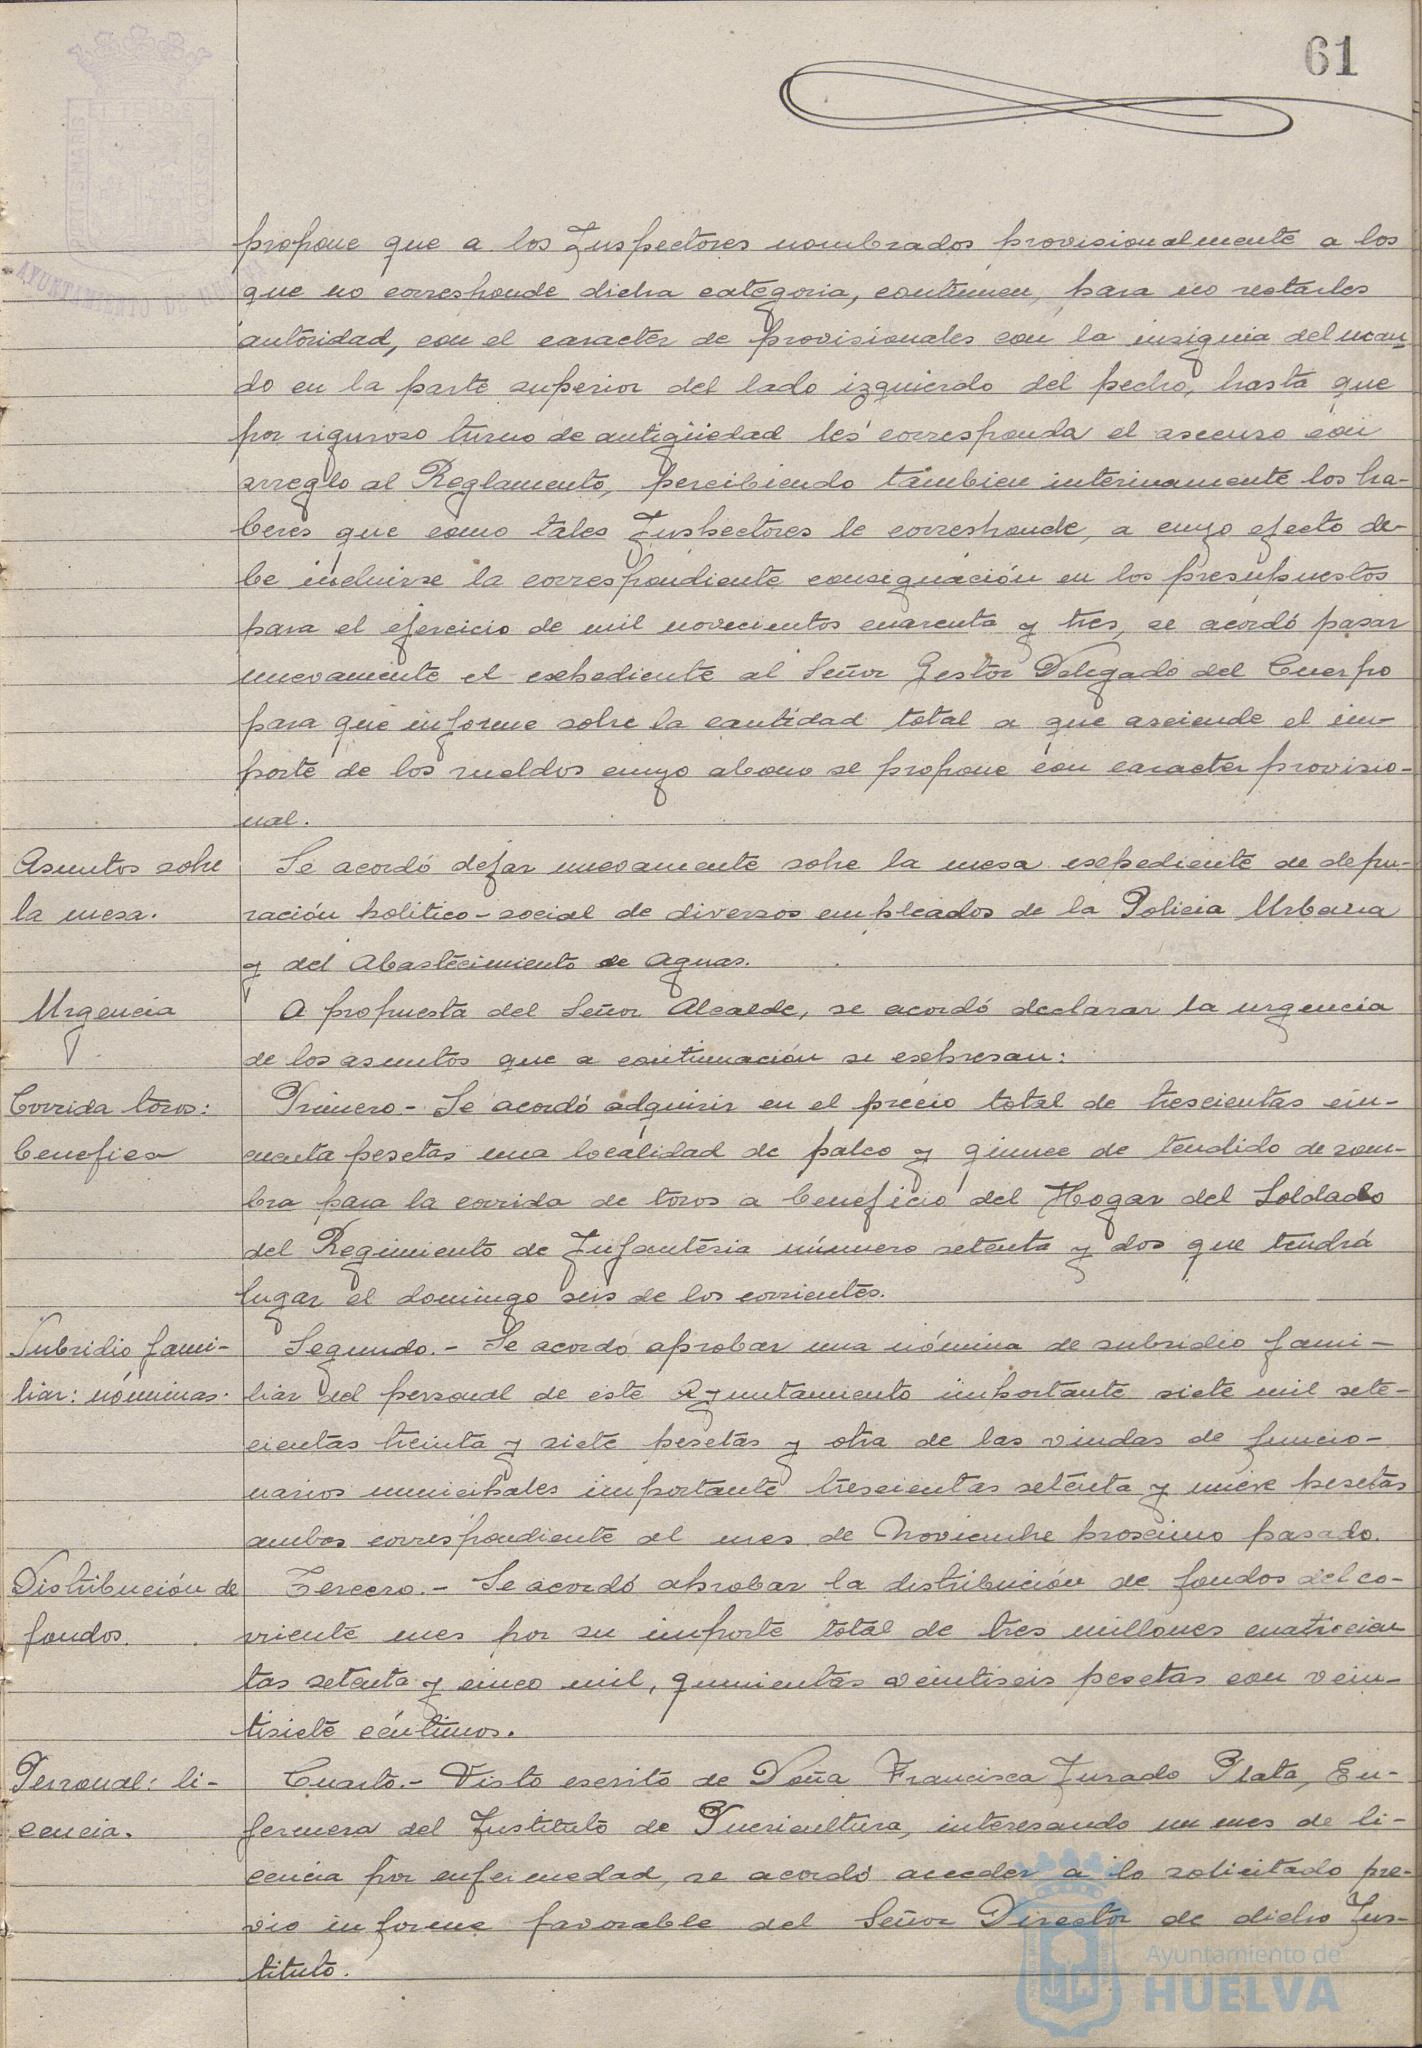 61
propone que a los Inspectores nombrados provisionalmente a los
que no corresponde dicha categoria, continuen, para no restarles
autoridad, con el caracter de provisionales con la insignia del man-
do en la parte superior del lado izquierdo del pecho, hasta que
por riguroso turno de antigüedad les corresponda el ascenso con
arreglo al Reglamento, percibiendo tambien interinamente los ha-
beres que como tales Inspectores le corresponde, a cuyo efecto de-
be incluirse la correspondiente consignación en los presupuestos
para el ejercicio de mil novecientos cuarenta y tres, se acordó pasar
nuevamente el expediente al Señor Gestor Delegado del Cuerpo
para que informe sobre la cantidad total a que asciende el im-
porte de los sueldos cuyo abono se propone con caracter provisio-
nal.
Asuntos sobre
la mesa.
Se acordó dejar nuevamente sobre la mesa expediente de depu-
ración politico-social de diversos empleados de la Policia Urbana
y del Abastecimiento de Aguas.
Urgencia
A propuesta del Señor Alcalde, se acordó declarar la urgencia
de los asuntos que a continuación se expresan:
Corrida toros:
benefica
Primero.- Se acordó adquirir en el precio total de trescientas cin-
cuenta pesetas una localidad de palco y quince de tendido de som-
bra para la corrida de toros a beneficio del Hogar del Soldado
del Regimiento de Infanteria número setenta y dos que tendrá
lugar el domingo seis de los corrientes.
Subsidio fami-
liar: nóminas.
Segundo.- Se acordó aprobar una nómina de subsidio fami-
liar del personal de este Ayuntamiento importante siete mil sete-
cientas treinta y siete pesetas y otra de las viudas de funcio-
narios municipales importante trescientas setenta y nueve pesetas
ambos correspondiente al mes de Noviembre proximo pasado.
Distribución de
fondos.
Tercero.- Se acordó aprobar la distribución de fondos del co-
rriente mes por su importe total de tres millones cuatrocien
tas setenta y cinco mil, quinientas veintiseis pesetas con vein-
tisiete céntimos.
Personal: li-
cencia.
Cuarto.- Visto escrito de Doña Francisca Jurado Plata, En-
fermera del Instituto de Puericultura, interesando un mes de li-
cencia por enfermedad, se acordó acceder a lo solicitado pre-
vio informe favorable del Señor Director de dicho Ins-
tituto.
AYUNTAMIENTO DE HUELVA
Ayuntamiento de
HUELVA